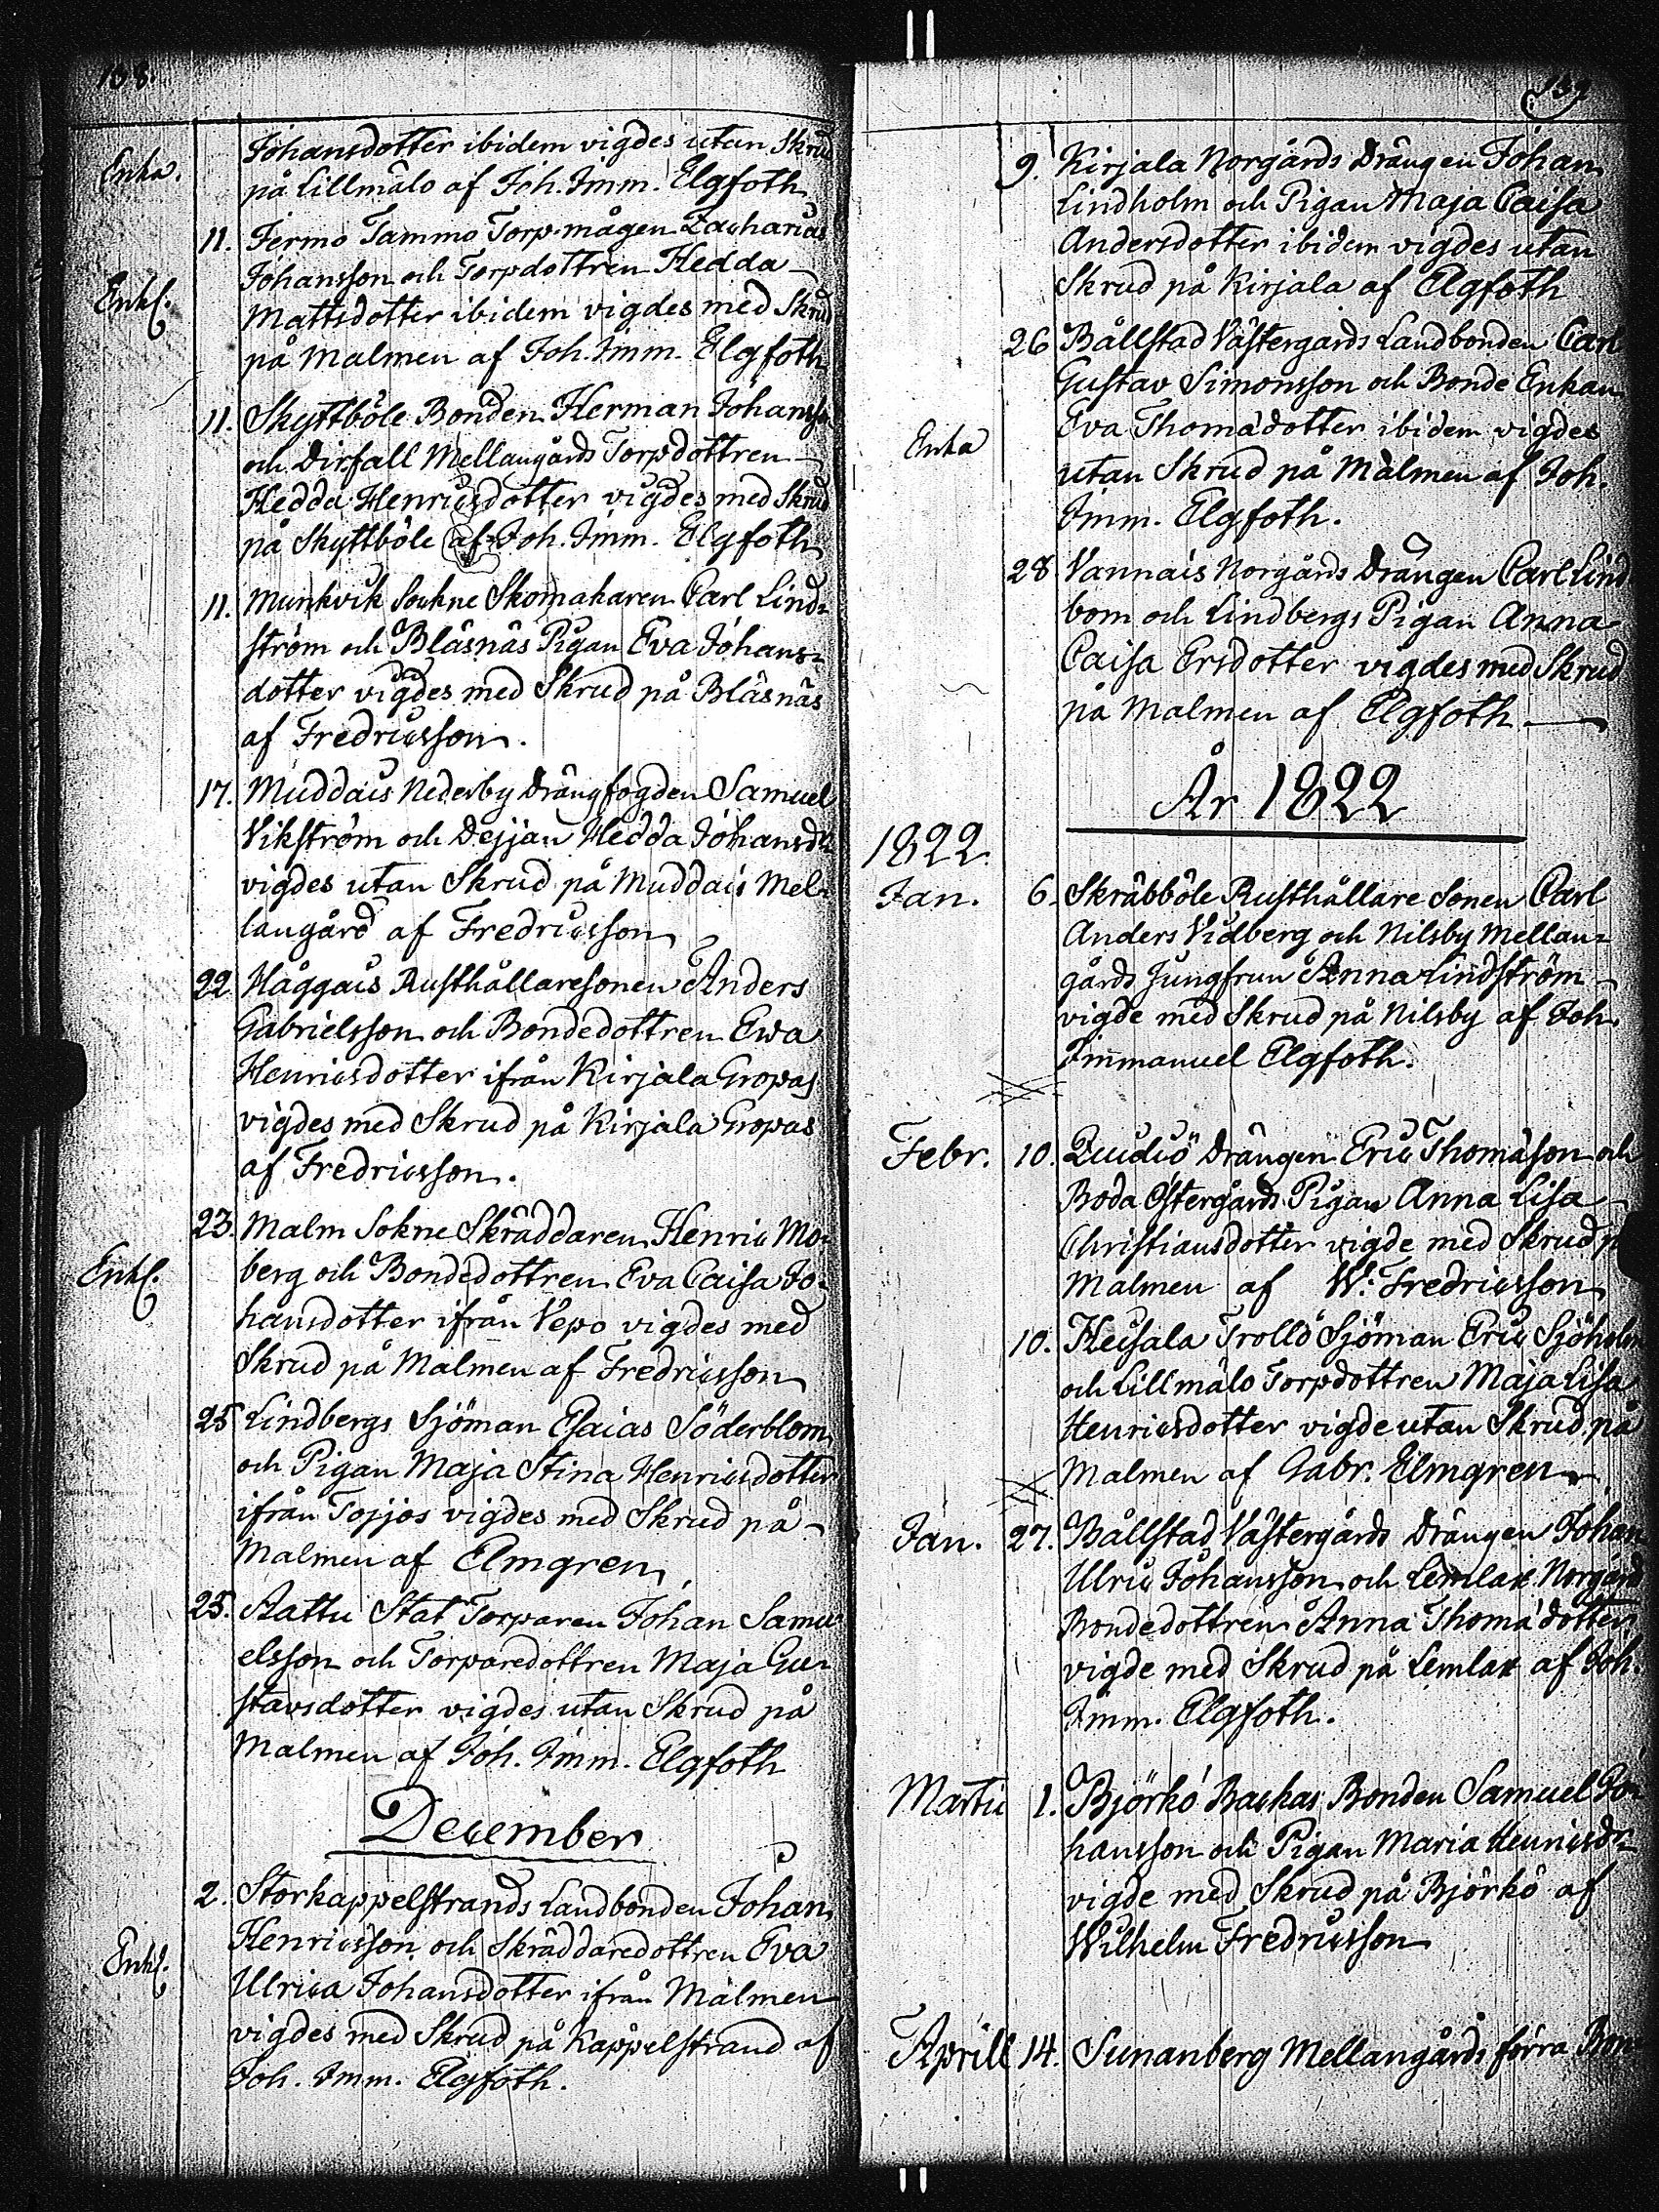 158.
Johansdotter ibidem vigdes utan Skrud
Enka.
på Lillmälo af Joh. Imm. Elgfoth
11. Fermo Tammo Torp-mågen Zacharias
Johansson och Torpdottren Hedda
Enkl.
Mattsdotter ibidem vigdes med Skrud
på Malmen af Joh. Imm. Elgfoth
11. Skyttböle Bonden Herman Johansso
och Dirfall Mellangårds Torpdottren
Hedda Henricsdotter vigdes med Skrud
på Skyttböle af Joh. Imm. Elgfoth
11. Munkvik Sockne Skomakaren Carl Lind-
ström och Bläsnäs Pigan Eva Johans-
dotter vigdes med Skrud på Bläsnäs
af Fredricsson.
17. Muddais Nederby Drängfogden Samuel
Vikström och Dejjan Hedda Johansdr
vigdes utan Skrud på Muddais Mel-
langård af Fredricsson
22 Häggais Rusthållaresonen Anders
Gabrielsson och Bondedottren Ewa
Henricsdotter ifrån Kirjala Gropas
vigdes med Skrud på Kirjala Gropas
af Fredricsson.
23. Malm Sokne Skräddaren Henric Mo-
Enkl.
berg och Bondedottren Eva Caisa Jo-
hansdotter ifrån Vepo vigdes med
Skrud på Malmen af Fredricsson
25 Lindbergs Sjöman Esaias Söderblom
och Pigan Maja Stina Henricsdotter
ifrån Tojjos vigdes med Skrud på
Malmen af Elmgren
25. Aattu Stat Torparen Johan Samu
elsson och Torparedottren Maja Gu-
stavsdotter vigdes utan Skrud på
Malmen af Joh. Imm. Elgfoth
December
2. Storkappelstrands Landbonden Johan
Henricsson och Skräddaredottren Eva
Enkl.
Ulrica Johansdotter ifrån Malmen
vigdes med Skrud på Kappelstrand af
Joh. Imm. Elgfoth.
159
9. Kirjala Norgårds Drängen Johan
Lindholm och Pigan Maja Caisa
Andersdotter ibidem vigdes utan
Skrud på Kirjala af Elgfoth
26 Bållstad Västergårds Landbonden Carl
Gustav Simonsson och Bonde Enkan
Enka
Eva Thomadotter ibidem vigdes
utan Skrud på Malmen af Joh.
Imm. Elgfoth.
28 Vannais Norgårds Drängen Carl Lind
bom och Lindbergs Pigan Anna
Caisa Ersdotter vigdes med Skrud
på Malmen af Elgfoth
År 1822
1822.
Jan. 6. Skräbböle Rusthållare Sonen Carl
Anders Vidberg och Nilsby Mellan-
gårds Jungfrun Anna Lindström
vigde med Skrud på Nilsby af Joh.
Immanuel Elgfoth.
Febr. 10. Quidiö Drängen Eric Thomason och
Boda Östergårds Pigan Anna Lisa
Christiansdotter vigde med Skrud p
Malmen af W. Fredricsson
10. Heisala Trollö Sjöman Eric Sjöholm
och Lillmälo Torpdottren Maja Lisa
Henricsdotter vigde utan Skrud på
Malmen af Gabr. Elmgren
Jan. 27. Bållstad Västergårds Drängen Johan
Ulric Johansson och Lemlax Norgård
Bondedottren Anna Thomadotter
vigde med Skrud på Lemlax af Joh.
Imm. Elgfoth.
Martii 1. Björkö Backas Bonden Samuel Jo
hansson och Pigan Maria Henricsdr
vigde med Skrud på Björkö af
Wilhelm Fredricsson
Aprill 14. Sunanberg Mellangårds förra Bon-